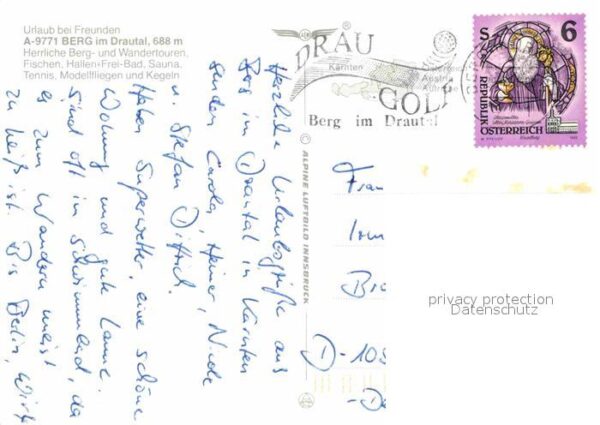 Urlaub bei Freunden
A-9771 BERG im Drautal, 688 m
Herrliche Berg- und Wandertouren,
Fischen, Hallen-Frei-Bad, Sauna,
Tennis, Modellfliegen und Kegeln
DRAU
Kärnten
GOLF
Berg im Drautal
S 6
REPUBLIK
ÖSTERREICH
Herzliche Urlaubsgrüße aus
Berg im Drautal in Kärnten
senden Carola, Heiner, Nicole
u. Stefan Dittrich.
Haben Superwetter, eine schöne
Wohnung und gute Laune.
Sind oft im Schwimmbad, da
es zum Wandern meist
zu heiß ist. Bis Berlin,
© ALPINE LUFTBILD INNSBRUCK
Frau
D-10
privacy protection
Datenschutz